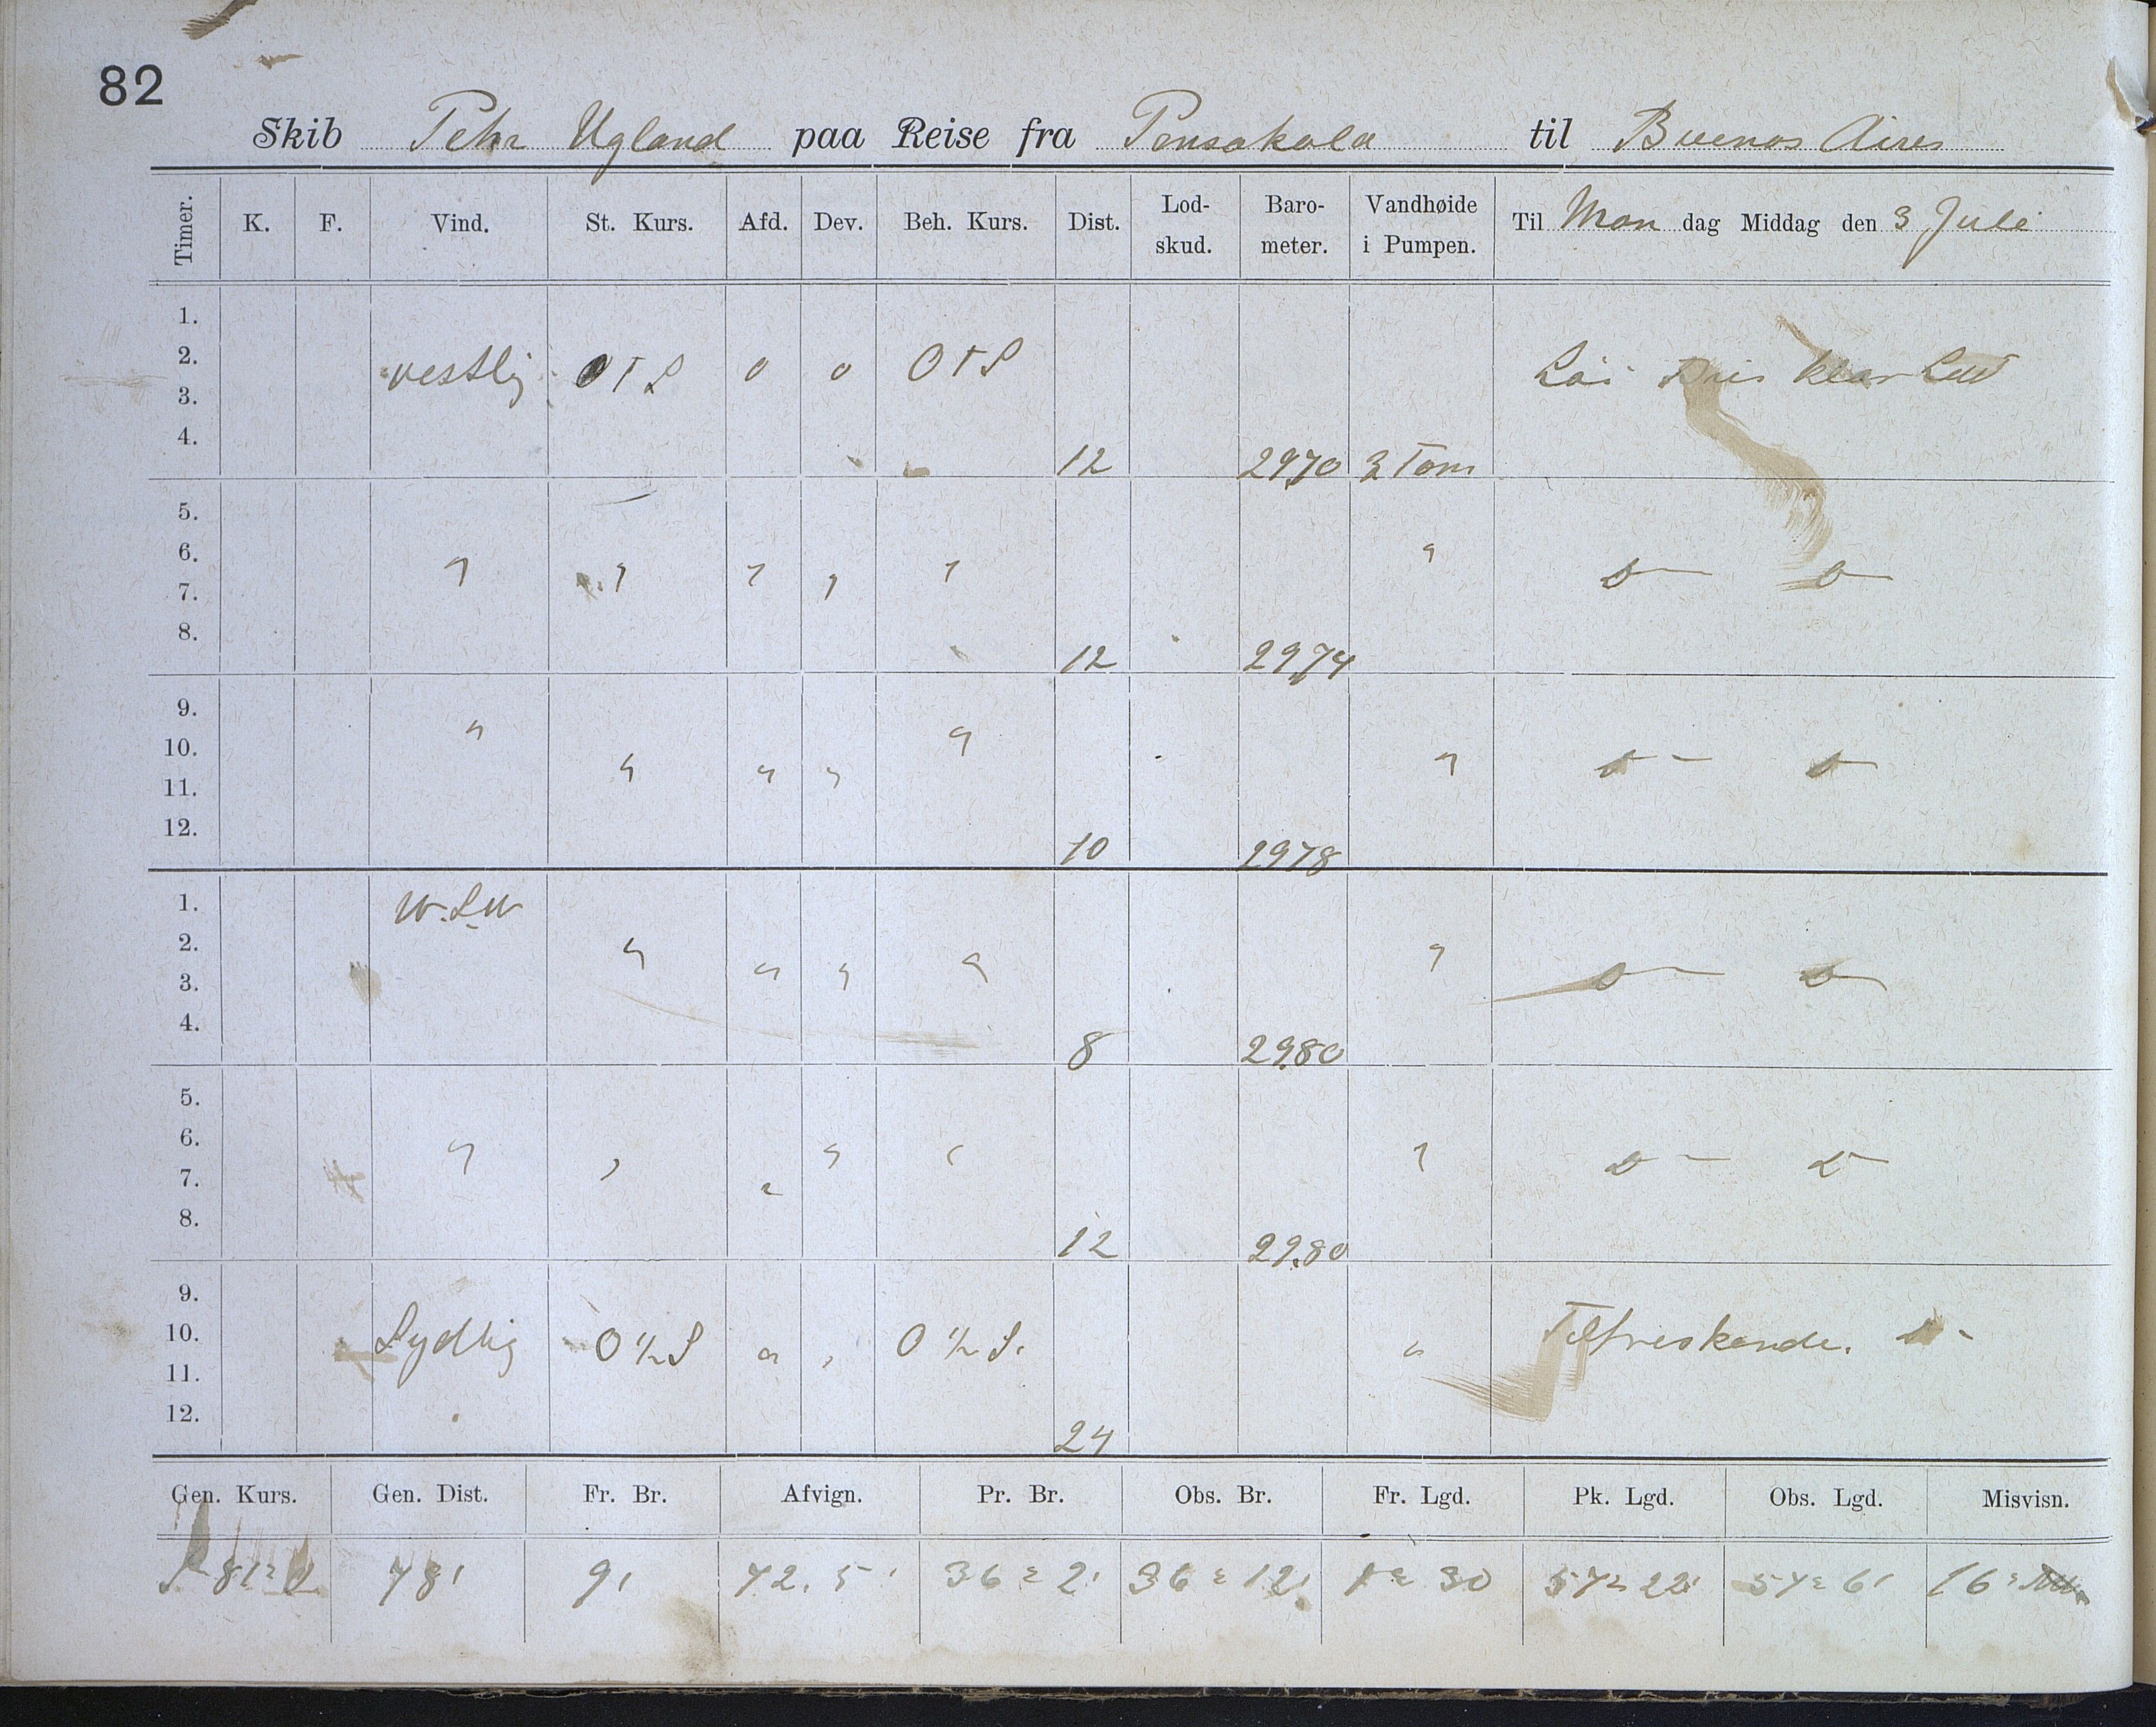 82
Skib Pehr Ugland paa Reise fra Pensakola til Buenos Aires
Timer. K. F. Vind. St. Kurs. Afd. Dev. Beh. Kurs. Dist. Lod-skud. Baro-meter. Vandhøide i Pumpen. Til Man dag Middag den 3 Juli
1.
2. vestlig OTS 0 0 OTS Klar
3.
4. 12 29,70 3 Tom
5.
6. " " " " " "
7.
8. 12 29,74
9.
10. " " " " " "
11.
12. 10 2978
1. W.SW
2. " " " " "
3.
4. 8 29.80
5.
6. " " " " " "
7.
8. 12 29.80
9.
10. Sydlig O ½ S " " O ½ S. " Tilfriskende.
11.
12. 24
Gen. Kurs. Gen. Dist. Fr. Br. Afvign. Pr. Br. Obs. Br. Fr. Lgd. Pk. Lgd. Obs. Lgd. Misvisn.
S 81° O 78' 9' 72.5' 36° 2' 36° 12' 1° 30 57° 22' 57° 6' 16°